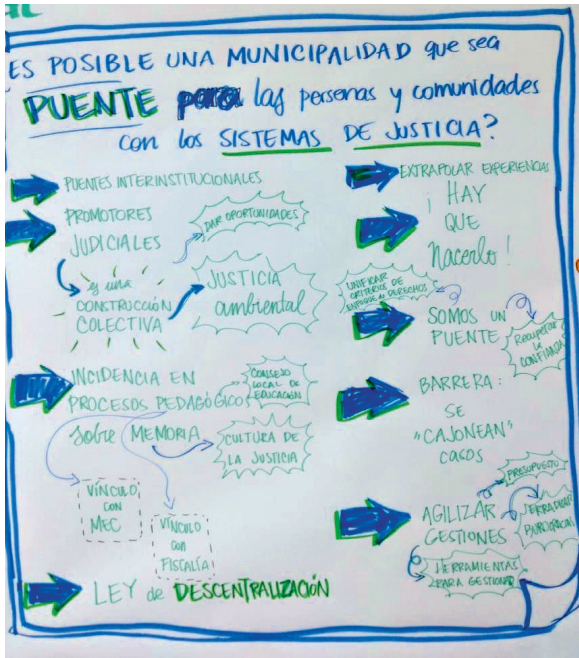 ES POSIBLE UNA MUNICIPALIDAD que sea
PUENTE para las personas y comunidades
con los SISTEMAS DE JUSTICIA?
PUENTES INTERINSTITUCIONALES
PROMOTORES
JUDICIALES
DAR OPORTUNIDADES
es una
CONSTRUCCIÓN
COLECTIVA
JUSTICIA
ambiental
INCIDENCIA EN
PROCESOS PEDAGÓGICOS
CONSEJO
LOCAL DE
EDUCACIÓN
sobre MEMORIA
CULTURA DE
LA JUSTICIA
VÍNCULO
con
MEC
VÍNCULO
con
FISCALÍA
LEY de DESCENTRALIZACIÓN
EXTRAPOLAR EXPERIENCIAS
¡HAY
QUE
Hacerlo!
UNIFICAR
CRITERIOS DE
ENFOQUE de DERECHOS
SOMOS UN
PUENTE
Recuperar
la
CONFIANZA
BARRERA:
SE
"CAJONEAN"
CASOS
PRESUPUESTO
AGILIZAR
GESTIONES
HERRAMIENTAS
PARA GESTIONAR